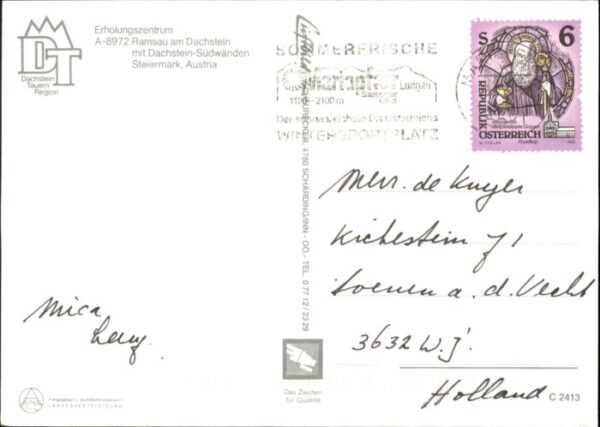 Erholungszentrum
A-8972 Ramsau am Dachstein
mit Dachstein-Südwänden
Steiermark, Austria
DT
Dachstein
Tauern
Region
SOMMERFRISCHE
Mariapfarr
Lungau
1120-2100 m
WINTERSPORTPLATZ
S 6
REPUBLIK
ÖSTERREICH
4780 SCHÄRDING/INN - OÖ., TEL. 0 77 12 / 23 29
Mevr. de Kuyer
Kichestein 71
Loenen a. d. Vecht
3632 W.J.
Holland
Mica
Das Zeichen
für Qualität
C 2413
LANDESVERTEIDIGUNG